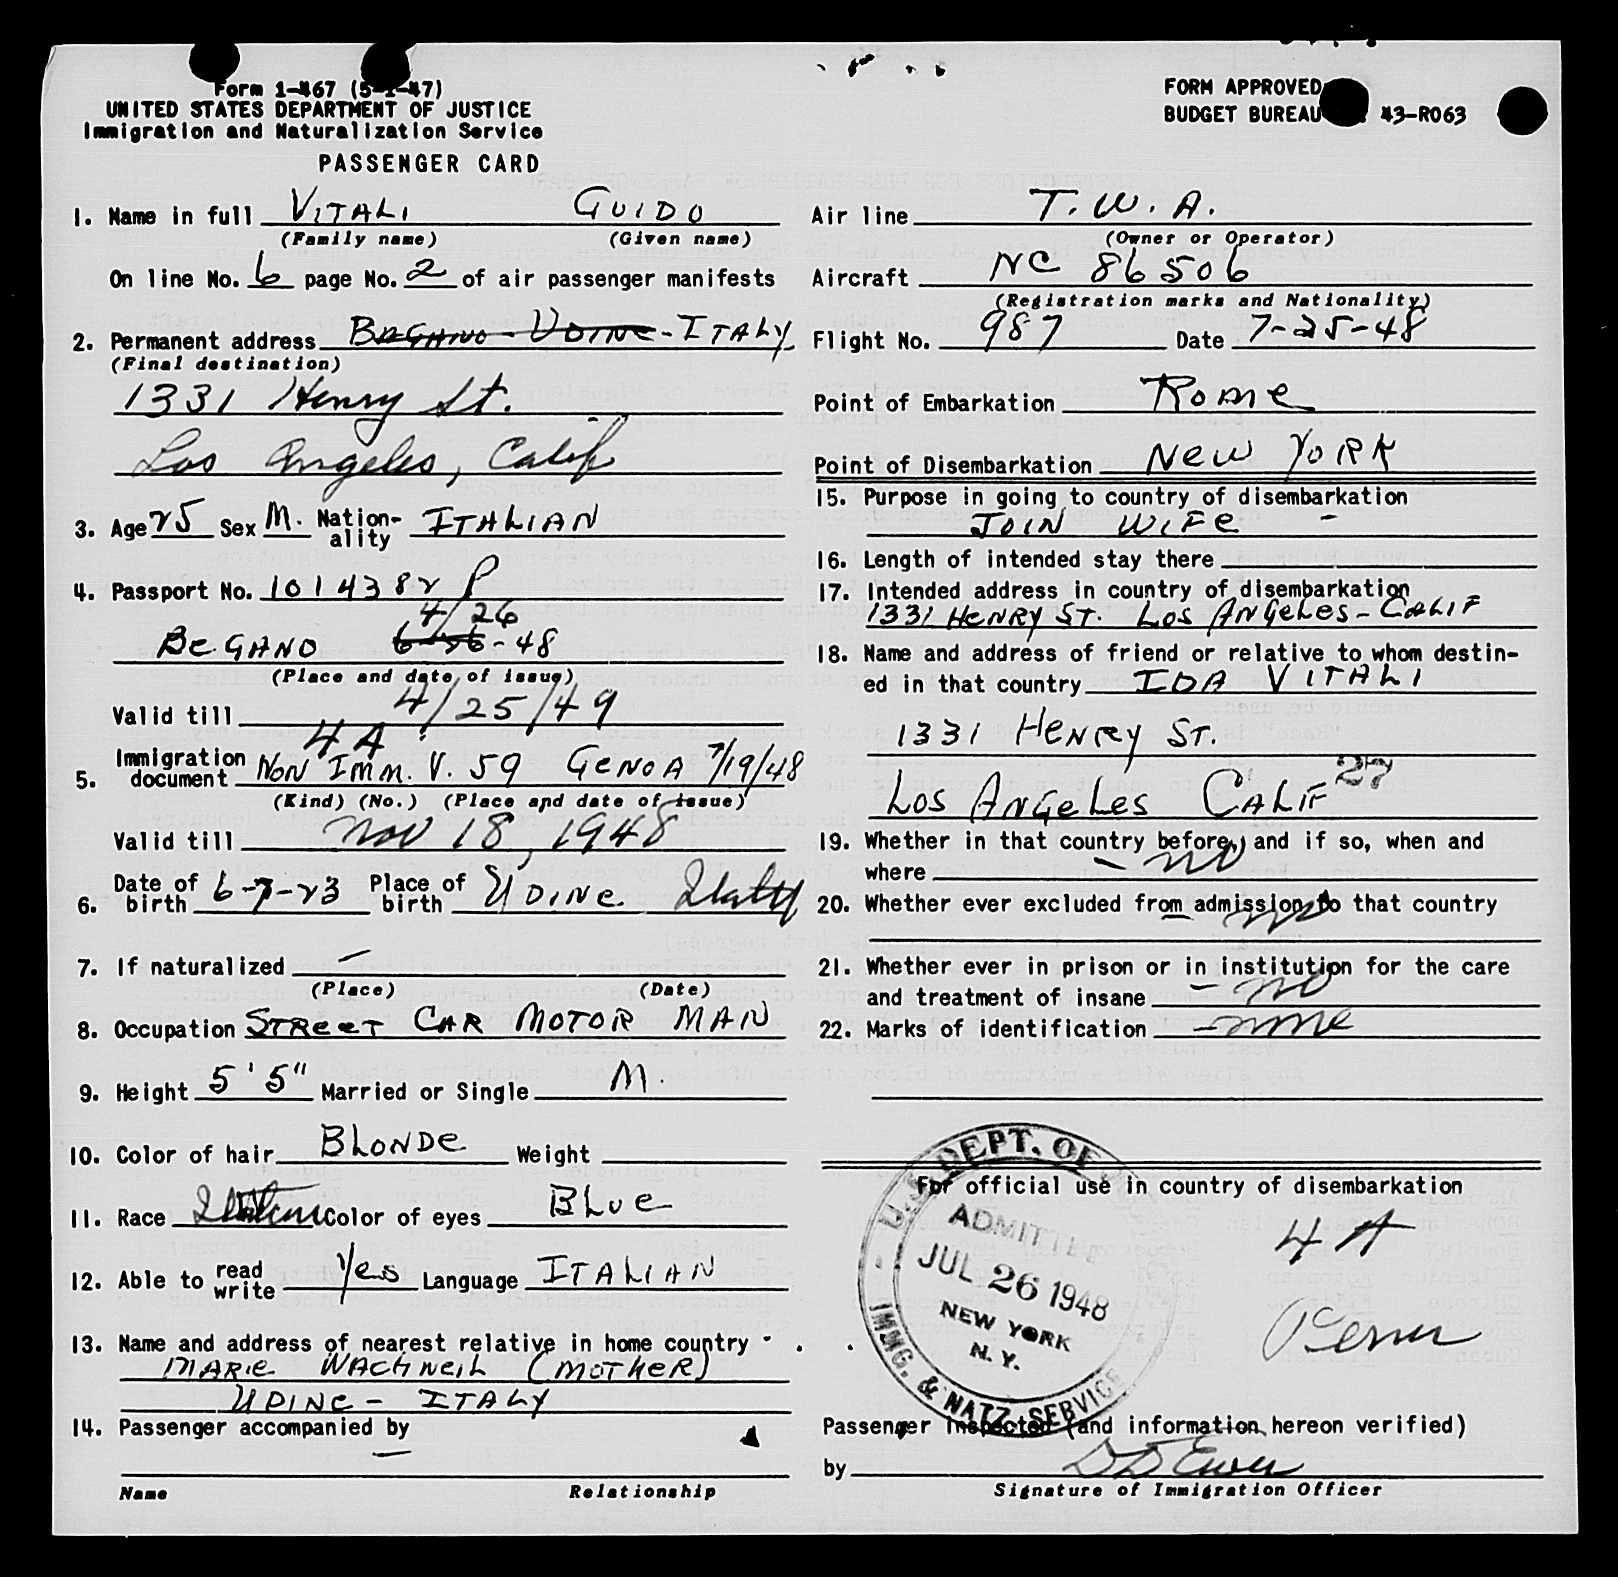 Form I-467 (5-1-47)
UNITED STATES DEPARTMENT OF JUSTICE
Immigration and Naturalization Service
PASSENGER CARD
FORM APPROVED
BUDGET BUREAU 43-R063
1. Name in full VITALI GUIDO
(Family name) (Given name)
On line No. 6 page No. 2 of air passenger manifests
2. Permanent address BAGANO - UDINE - ITALY
(Final destination)
1331 Henry St.
Los Angeles, Calif
3. Age 25 Sex M. Nation-ality ITALIAN
4. Passport No. 1014382 P
4/26
BEGANO 6-26-48
(Place and date of issue)
Valid till 4/25/49
4A
5. Immigration document NON IMM. V. 59 GENOA 7/19/48
(Kind) (No.) (Place and date of issue)
Valid till Nov 18, 1948
6. Date of birth 6-7-23 Place of birth UDINE Italy
7. If naturalized —
(Place) (Date)
8. Occupation STREET CAR MOTOR MAN
9. Height 5' 5" Married or Single M.
10. Color of hair BLONDE Weight
11. Race Color of eyes BLUE
12. Able to read write Yes Language ITALIAN
13. Name and address of nearest relative in home country
MARIE WACHNEIL (MOTHER)
UDINE - ITALY
14. Passenger accompanied by
—
Name Relationship
Air line T.W.A.
(Owner or Operator)
Aircraft NC 86506
(Registration marks and Nationality)
Flight No. 987 Date 7-25-48
Point of Embarkation ROME
Point of Disembarkation NEW YORK
15. Purpose in going to country of disembarkation
JOIN WIFE -
16. Length of intended stay there
17. Intended address in country of disembarkation
1331 HENRY ST. LOS ANGELES - CALIF
18. Name and address of friend or relative to whom destin-
ed in that country IDA VITALI
1331 HENRY ST.
LOS ANGELES CALIF 27
19. Whether in that country before, and if so, when and
where - no
20. Whether ever excluded from admission to that country
- no
21. Whether ever in prison or in institution for the care
and treatment of insane - no
22. Marks of identification - none
For official use in country of disembarkation
4A
U.S. DEPT. OF
ADMITTED
JUL 26 1948
NEW YORK
N.Y.
IMMG. & NATZ. SERVICE
Passenger inspected (and information hereon verified)
by
Signature of Immigration Officer